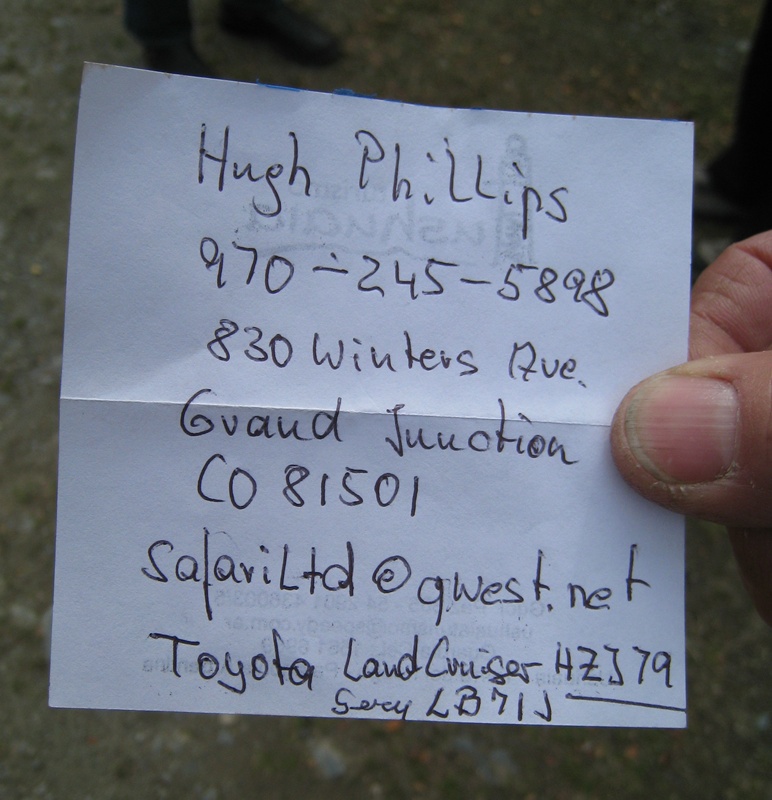 Hugh Phillips
970-245-5898
830 Winters Ave.
Grand Junction
CO 81501
SafariLtd@qwest.net
Toyota LandCruiser HZJ79
LB71J